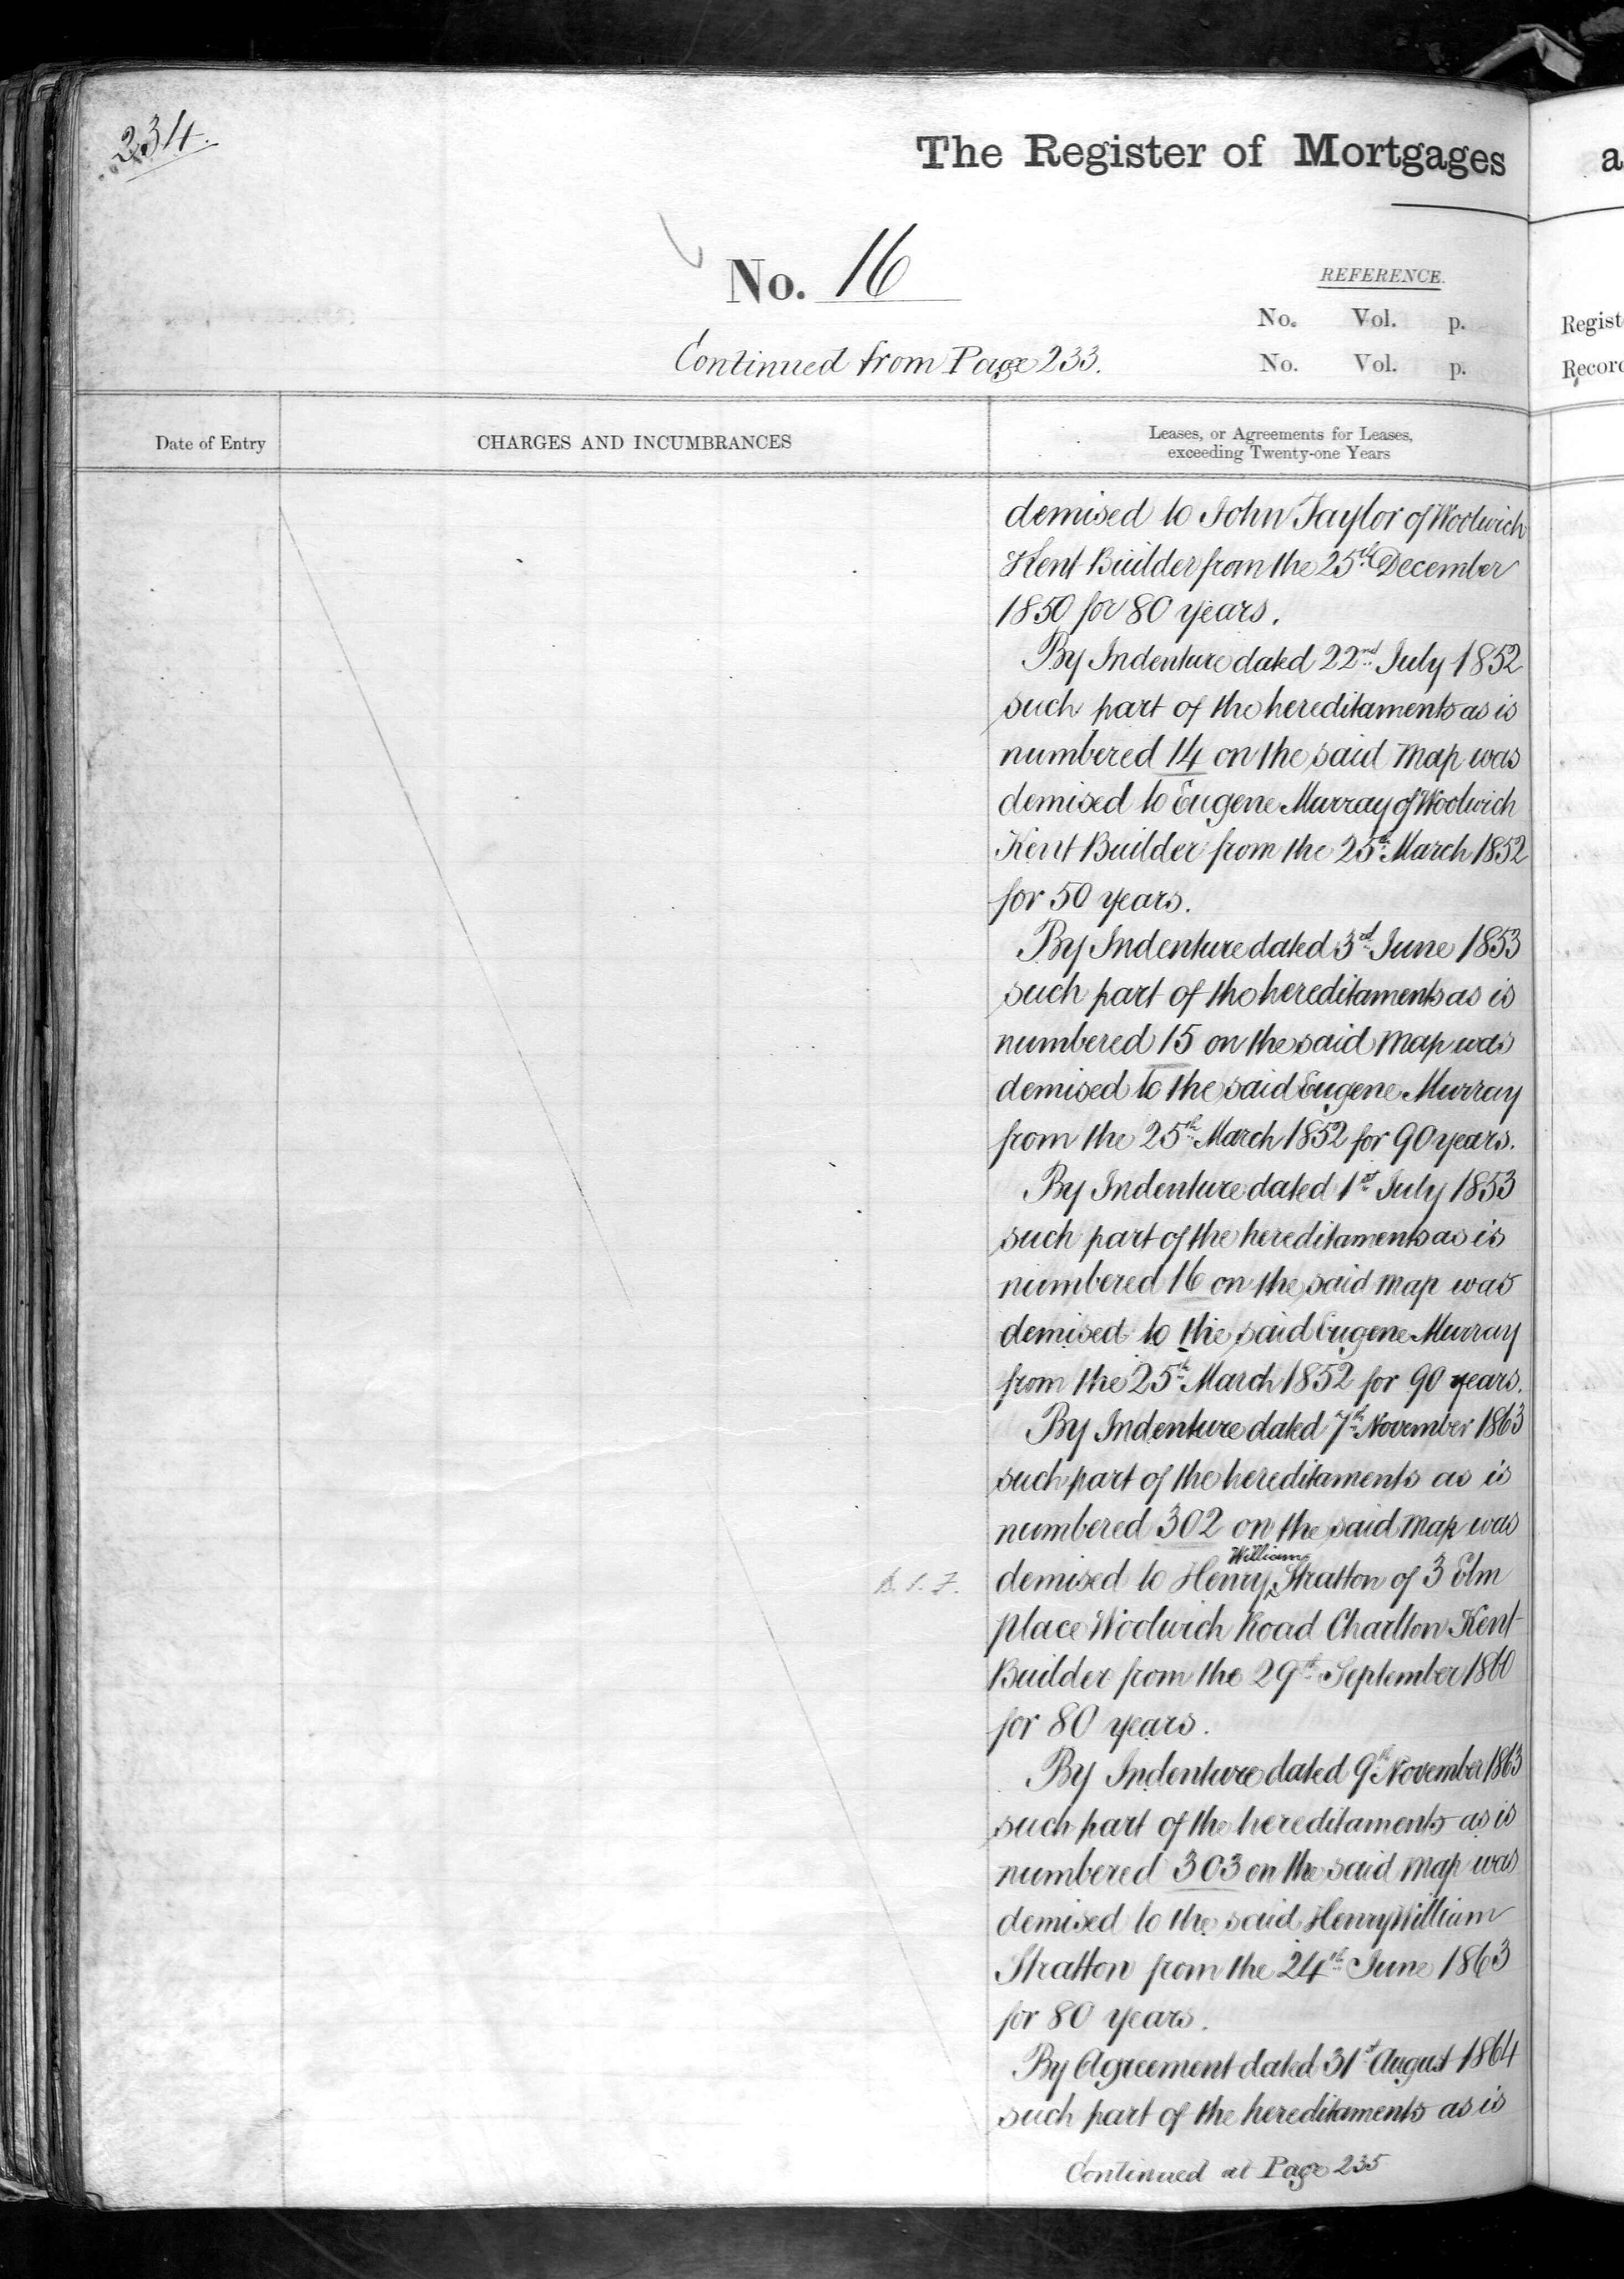 234.
The Register of Mortgages
No. 16
REFERENCE.
No. Vol. p.
No. Vol. p.
Continued from Page 233.
Date of Entry
CHARGES AND INCUMBRANCES
Leases, or Agreements for Leases,
exceeding Twenty-one Years
demised to John Taylor of Woolwich
Kent Builder from the 25th December
1850 for 80 years.
By Indenture dated 22nd July 1852
such part of the hereditaments as is
numbered 14 on the said map was
demised to Eugene Murray of Woolwich
Kent Builder from the 25th March 1852
for 50 years.
By Indenture dated 3rd June 1853
such part of the hereditaments as is
numbered 15 on the said map was
demised to the said Eugene Murray
from the 25th March 1852 for 90 years.
By Indenture dated 1st July 1853
such part of the hereditaments as is
numbered 16 on the said map was
demised to the said Eugene Murray
from the 25th March 1852 for 90 years.
By Indenture dated 7th November 1863
such part of the hereditaments as is
numbered 302 on the said map was
demised to Henry William Stratton of 3 Elm
place Woolwich Road Charlton Kent
Builder from the 29th September 1860
for 80 years.
By Indenture dated 9th November 1863
such part of the hereditaments as is
numbered 303 on the said map was
demised to the said Henry William
Stratton from the 24th June 1863
for 80 years.
By Agreement dated 31st August 1864
such part of the hereditaments as is
Continued at Page 235
a
Regist
Record